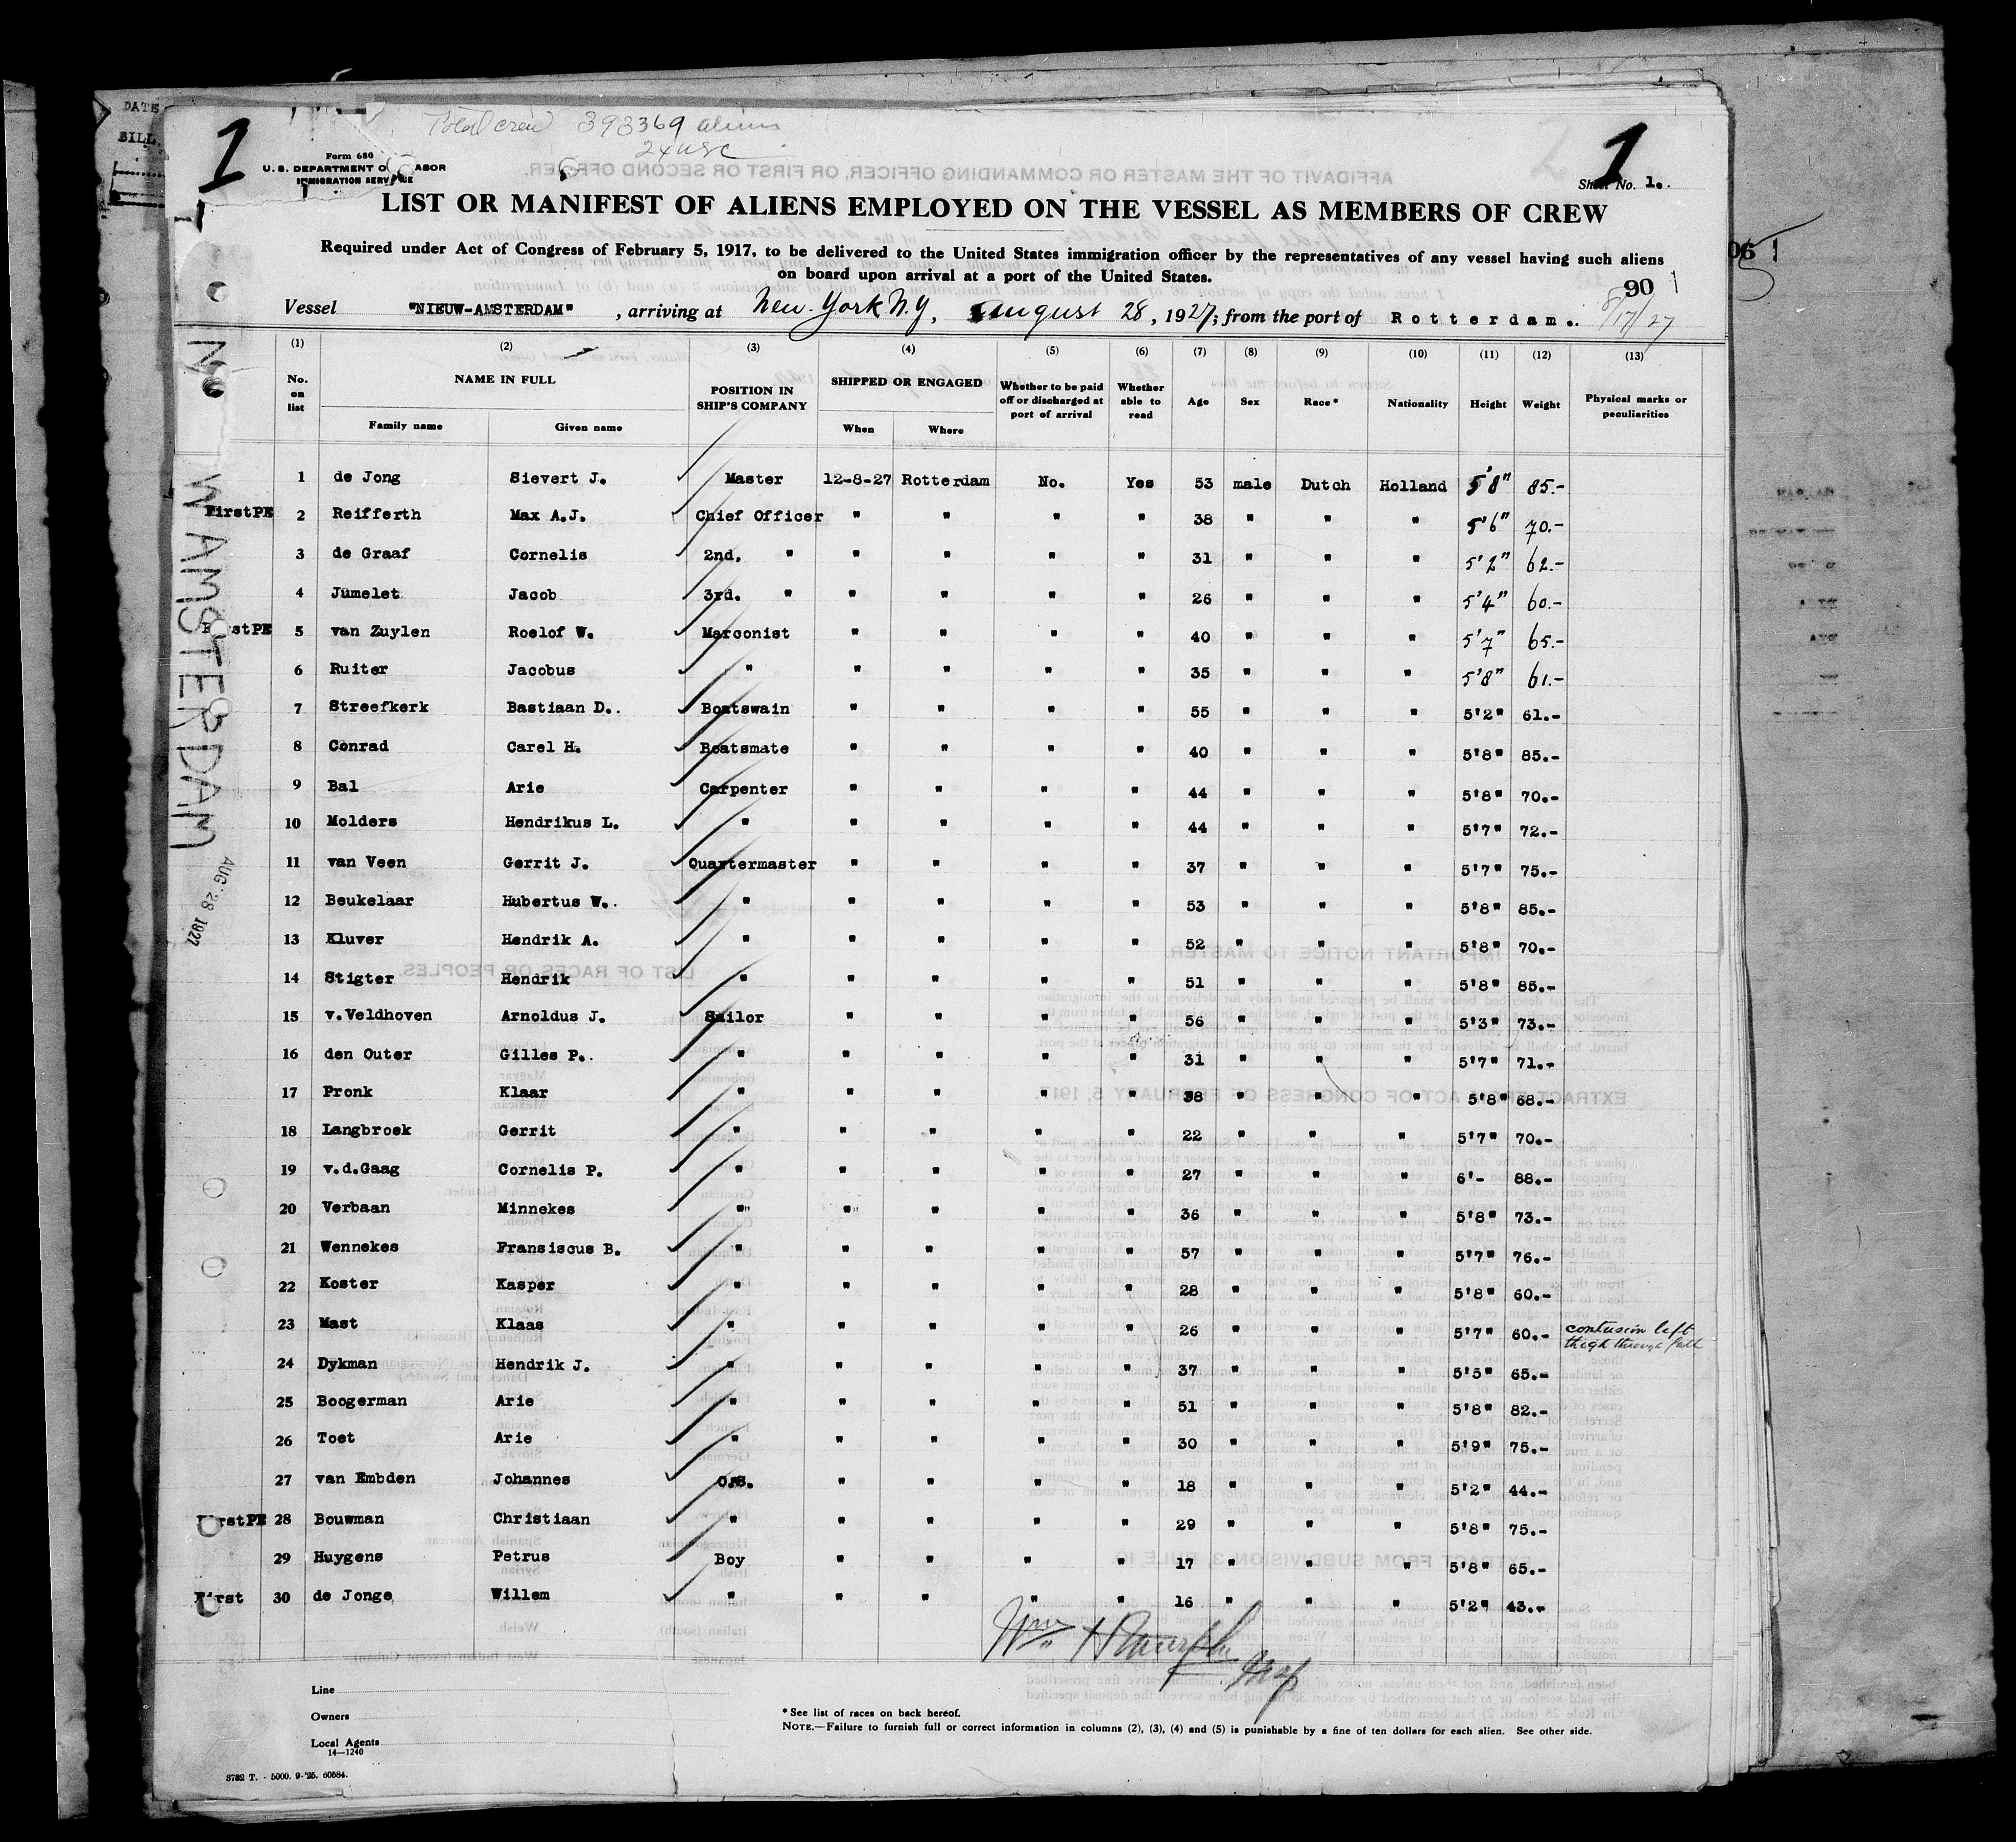 DATE
BILL.
1
Total crew 393 369 aliens
24 USC
1
Form 680
U. S. DEPARTMENT OF LABOR
IMMIGRATION SERVICE
Sheet No. 1.
LIST OR MANIFEST OF ALIENS EMPLOYED ON THE VESSEL AS MEMBERS OF CREW
Required under Act of Congress of February 5, 1917, to be delivered to the United States immigration officer by the representatives of any vessel having such aliens
on board upon arrival at a port of the United States.
90
Vessel "NIEUW-AMSTERDAM", arriving at New York N.Y, August 28, 1927; from the port of Rotterdam. 8/17/27
(1) (2) (3) (4) (5) (6) (7) (8) (9) (10) (11) (12) (13)
No. on list NAME IN FULL Family name Given name POSITION IN SHIP'S COMPANY SHIPPED OR ENGAGED When Where Whether to be paid off or discharged at port of arrival Whether able to read Age Sex Race* Nationality Height Weight Physical marks or peculiarities
1 de Jong Sievert J. Master 12-8-27 Rotterdam No. Yes 53 male Dutch Holland 5'8" 85.-
FirstPE 2 Reifferth Max A.J. Chief Officer " " " " 38 " " " 5'6" 70.-
3 de Graaf Cornelis 2nd. " " " " " 31 " " " 5'2" 62.-
4 Jumelet Jacob 3rd. " " " " " 26 " " " 5'4" 60.-
FirstPE 5 van Zuylen Roelof W. Marconist " " " " 40 " " " 5'7" 65.-
6 Ruiter Jacobus " " " " " 35 " " " 5'8" 61.-
7 Streefkerk Bastiaan D.. Boatswain " " " " 55 " " " 5'2" 61.-
8 Conrad Carel H. Boatsmate " " " " 40 " " " 5'8" 85.-
9 Bal Arie Carpenter " " " " 44 " " " 5'8" 70.-
10 Molders Hendrikus L. " " " " " 44 " " " 5'7" 72.-
11 van Veen Gerrit J. Quartermaster " " " " 37 " " " 5'7" 75.-
12 Beukelaar Hubertus W.. " " " " " 53 " " " 5'8" 85.-
13 Kluver Hendrik A. " " " " " 52 " " " 5'8" 70.-
14 Stigter Hendrik " " " " " 51 " " " 5'8" 85.-
15 v.Veldhoven Arnoldus J. Sailor " " " " 56 " " " 5'3" 73.-
16 den Outer Gilles P.. " " " " " 31 " " " 5'7" 71.-
17 Pronk Klaar " " " " " 38 " " " 5'8" 68.-
18 Langbroek Gerrit " " " " " 22 " " " 5'7" 70.-
19 v.d.Gaag Cornelis P. " " " " " 27 " " " 6'- 88.-
20 Verbaan Minnekes " " " " " 36 " " " 5'8" 73.-
21 Wennekes Fransiscus B. " " " " " 57 " " " 5'7" 76.-
22 Koster Kasper " " " " " 28 " " " 5'8" 60.-
23 Mast Klaas " " " " " 26 " " " 5'7" 60.- contusion left
thigh through fall
24 Dykman Hendrik J. " " " " " 37 " " " 5'5" 65.-
25 Boogerman Arie " " " " " 51 " " " 5'8" 82.-
26 Toet Arie " " " " " 30 " " " 5'9" 75.-
27 van Embden Johannes O.S. " " " " 18 " " " 5'2" 44.-
FirstPE 28 Bouwman Christiaan " " " " " 29 " " " 5'8" 75.-
29 Huygens Petrus Boy " " " " 17 " " " 5'8" 65.-
First 30 de Jonge Willem " " " " " 16 " " " 5'2" 43.-
Wm H Murphy
Insp
Line
Owners
Local Agents
14—1240
3782 T. - 5000. 9-'25. 60584.
* See list of races on back hereof.
NOTE.—Failure to furnish full or correct information in columns (2), (3), (4) and (5) is punishable by a fine of ten dollars for each alien. See other side.
N. AMSTERDAM
AUG 28 1927